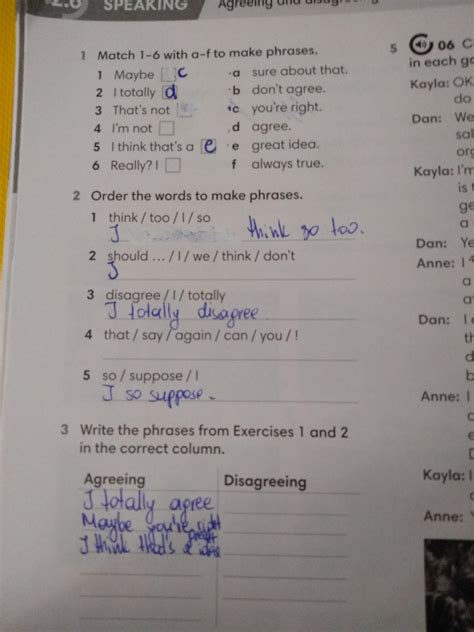 2.6 SPEAKING Agreeing and
1 Match 1–6 with a–f to make phrases.
1 Maybe c a sure about that.
2 I totally d b don't agree.
3 That's not c you're right.
4 I'm not d agree.
5 I think that's a e e great idea.
6 Really? I f always true.
2 Order the words to make phrases.
1 think / too / I / so
I think so too.
2 should ... / I / we / think / don't
I
3 disagree / I / totally
I totally disagree.
4 that / say / again / can / you / !
5 so / suppose / I
I so suppose.
3 Write the phrases from Exercises 1 and 2
in the correct column.
Agreeing Disagreeing
I totally agree
Maybe you're right
I think that's a great idea
5 06 C
in each ga
Kayla: OK
do
Dan: We
sal
org
Kayla: I'm
is t
ge
a
Dan: Ye
Anne: I
a
at
Dan: I
th
d
b
Anne: I
Kayla: I
Anne: